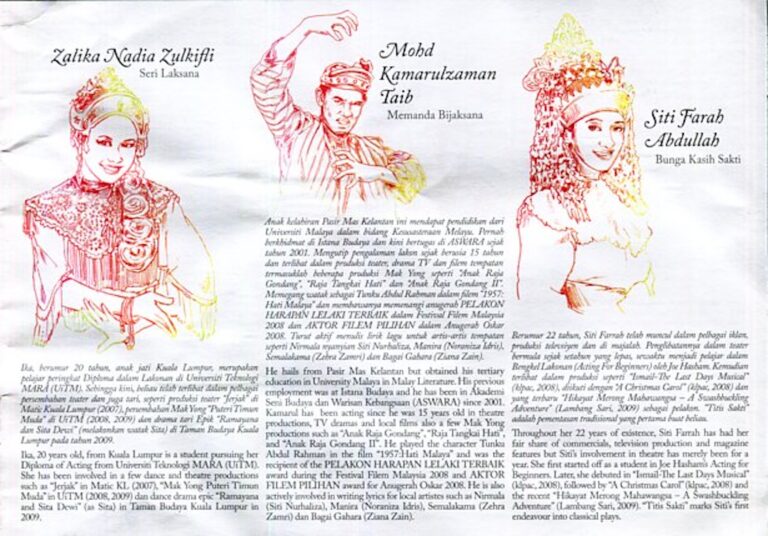 Zalika Nadia Zulkifli
Seri Laksana
Ika, berumur 20 tahun, anak jati Kuala Lumpur, merupakan
pelajar peringkat Diploma dalam Lakonan di Universiti Teknologi
MARA (UiTM). Sehingga kini, beliau telah terlibat dalam pelbagai
persembahan teater dan juga tari, seperti produksi teater "Jerjak" di
Matic Kuala Lumpur (2007), persembahan Mak Yong "Puteri Timun
Muda" di UiTM (2008, 2009) dan drama tari Epik "Ramayana
dan Sita Dewi" (melakonkan watak Sita) di Taman Budaya Kuala
Lumpur pada tahun 2009.
Ika, 20 years old, from Kuala Lumpur is a student pursuing her
Diploma of Acting from Universiti Teknologi MARA (UiTM).
She has been involved in a few dance and theatre productions
such as "Jerjak" in Matic KL (2007), "Mak Yong Puteri Timun
Muda" in UiTM (2008, 2009) and dance drama epic "Ramayana
and Sita Dewi" (as Sita) in Taman Budaya Kuala Lumpur in
2009.
Mohd
Kamarulzaman
Taib
Memanda Bijaksana
Anak kelahiran Pasir Mas Kelantan ini mendapat pendidikan dari
Universiti Malaya dalam bidang Kesusasteraan Melayu. Pernah
berkhidmat di Istana Budaya dan kini bertugas di ASWARA sejak
tahun 2001. Mengutip pengalaman lakon sejak berusia 15 tahun
dan terlibat dalam produksi teater, drama TV dan filem tempatan
termasuklah beberapa produksi Mak Yong seperti "Anak Raja
Gondang", "Raja Tangkai Hati" dan "Anak Raja Gondang II".
Memegang watak sebagai Tunku Abdul Rahman dalam filem "1957:
Hati Malaya" dan membawanya memenangi anugerah PELAKON
HARAPAN LELAKI TERBAIK dalam Festival Filem Malaysia
2008 dan AKTOR FILEM PILIHAN dalam Anugerah Oskar
2008. Turut aktif menulis lirik lagu untuk artis-artis tempatan
seperti Nirmala nyanyian Siti Nurhaliza, Manira (Noraniza Idris),
Semalakama (Zehra Zamri) dan Bagai Gahara (Ziana Zain).
He hails from Pasir Mas Kelantan but obtained his tertiary
education in University Malaya in Malay Literature. His previous
employment was at Istana Budaya and he has been in Akademi
Seni Budaya dan Warisan Kebangsaan (ASWARA) since 2001.
Kamarul has been acting since he was 15 years old in theatre
productions, TV dramas and local films also a few Mak Yong
productions such as "Anak Raja Gondang", "Raja Tangkai Hati",
and "Anak Raja Gondang II". He played the character Tunku
Abdul Rahman in the film "1957:Hati Malaya" and was the
recipient of the PELAKON HARAPAN LELAKI TERBAIK
award during the Festival Filem Malaysia 2008 and AKTOR
FILEM PILIHAN award for Anugerah Oskar 2008. He is also
actively involved in writing lyrics for local artistes such as Nirmala
(Siti Nurhaliza), Manira (Noraniza Idris), Semalakama (Zehra
Zamri) dan Bagai Gahara (Ziana Zain).
Siti Farah
Abdullah
Bunga Kasih Sakti
Berumur 22 tahun, Siti Farah telah muncul dalam pelbagai iklan,
produksi televisyen dan di majalah. Penglibatannya dalam teater
bermula sejak setahun yang lepas, sewaktu menjadi pelajar dalam
Bengkel Lakonan (Acting For Beginners) oleh Joe Hasham. Kemudian
terlibat dalam produksi seperti "Ismail-The Last Days Musical"
(klpac, 2008), diikuti dengan "A Christmas Carol" (klpac, 2008) dan
yang terbaru "Hikayat Merong Mahawangsa – A Swashbuckling
Adventure" (Lambang Sari, 2009) sebagai pelakon. "Titis Sakti"
adalah pementasan tradisional yang pertama buat beliau.
Throughout her 22 years of existence, Siti Farah has had her
fair share of commercials, television production and magazine
features but Siti's involvement in theatre has merely been for a
year. She first started off as a student in Joe Hashams Acting for
Beginners. Later, she debuted in "Ismail-The Last Days Musical"
(klpac, 2008), followed by "A Christmas Carol" (klpac, 2008) and
the recent "Hikayat Merong Mahawangsa – A Swashbuckling
Adventure" (Lambang Sari, 2009). "Titis Sakti" marks Siti's first
endeavour into classical plays.